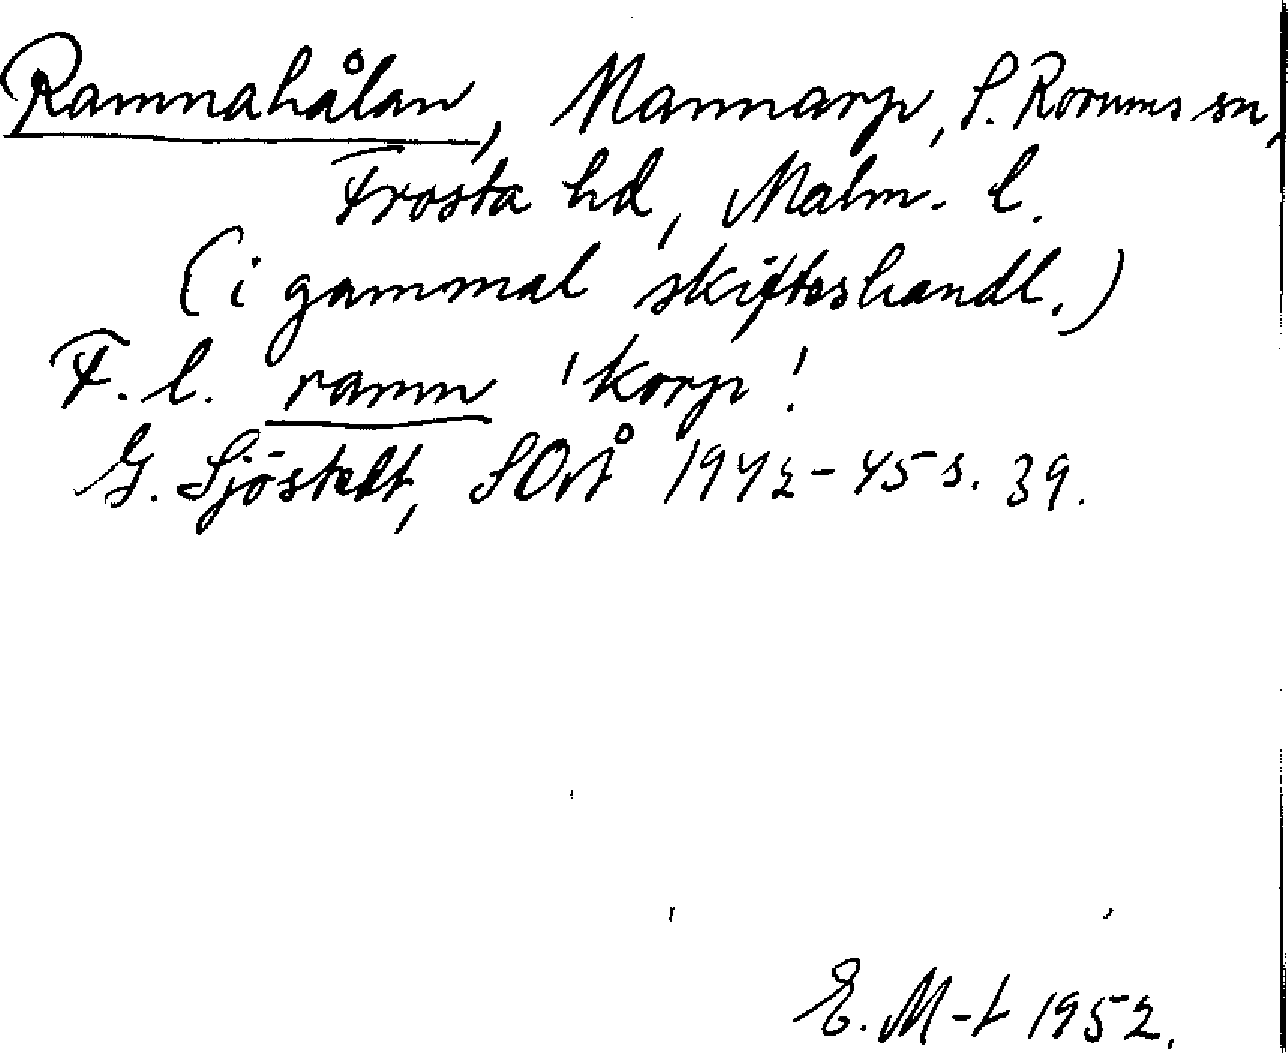 Ramnahålan, Mannarp, S. Rörums sn,
Frosta hd, Malm. l.
(i gammal skifteshandl.)
F. l. ramn 'korp'.
G. Sjöstedt, SOÅ 1942-45 s. 39.
E. M-t 1952.